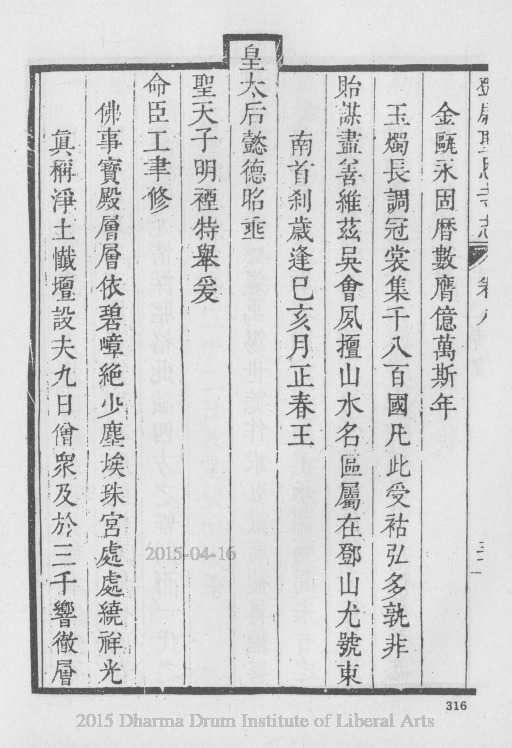 鄧尉聖恩寺志 卷八
金甌永固曆數膺億萬斯年
玉燭長調冠裳集千八百國凡此受祜弘多孰非
貽謀盡善維茲吳會夙擅山水名區屬在鄧山尤號東
南首刹歲逢巳亥月正春王
皇太后懿德昭垂
聖天子明禋特舉爰
命臣工聿修
佛事寶殿層層依碧嶂絶少塵埃珠宮處處繞祥光
眞稱淨土懺壇設夫九日僧衆及於三千響徹層
2015-04-16
316
2015 Dharma Drum Institute of Liberal Arts